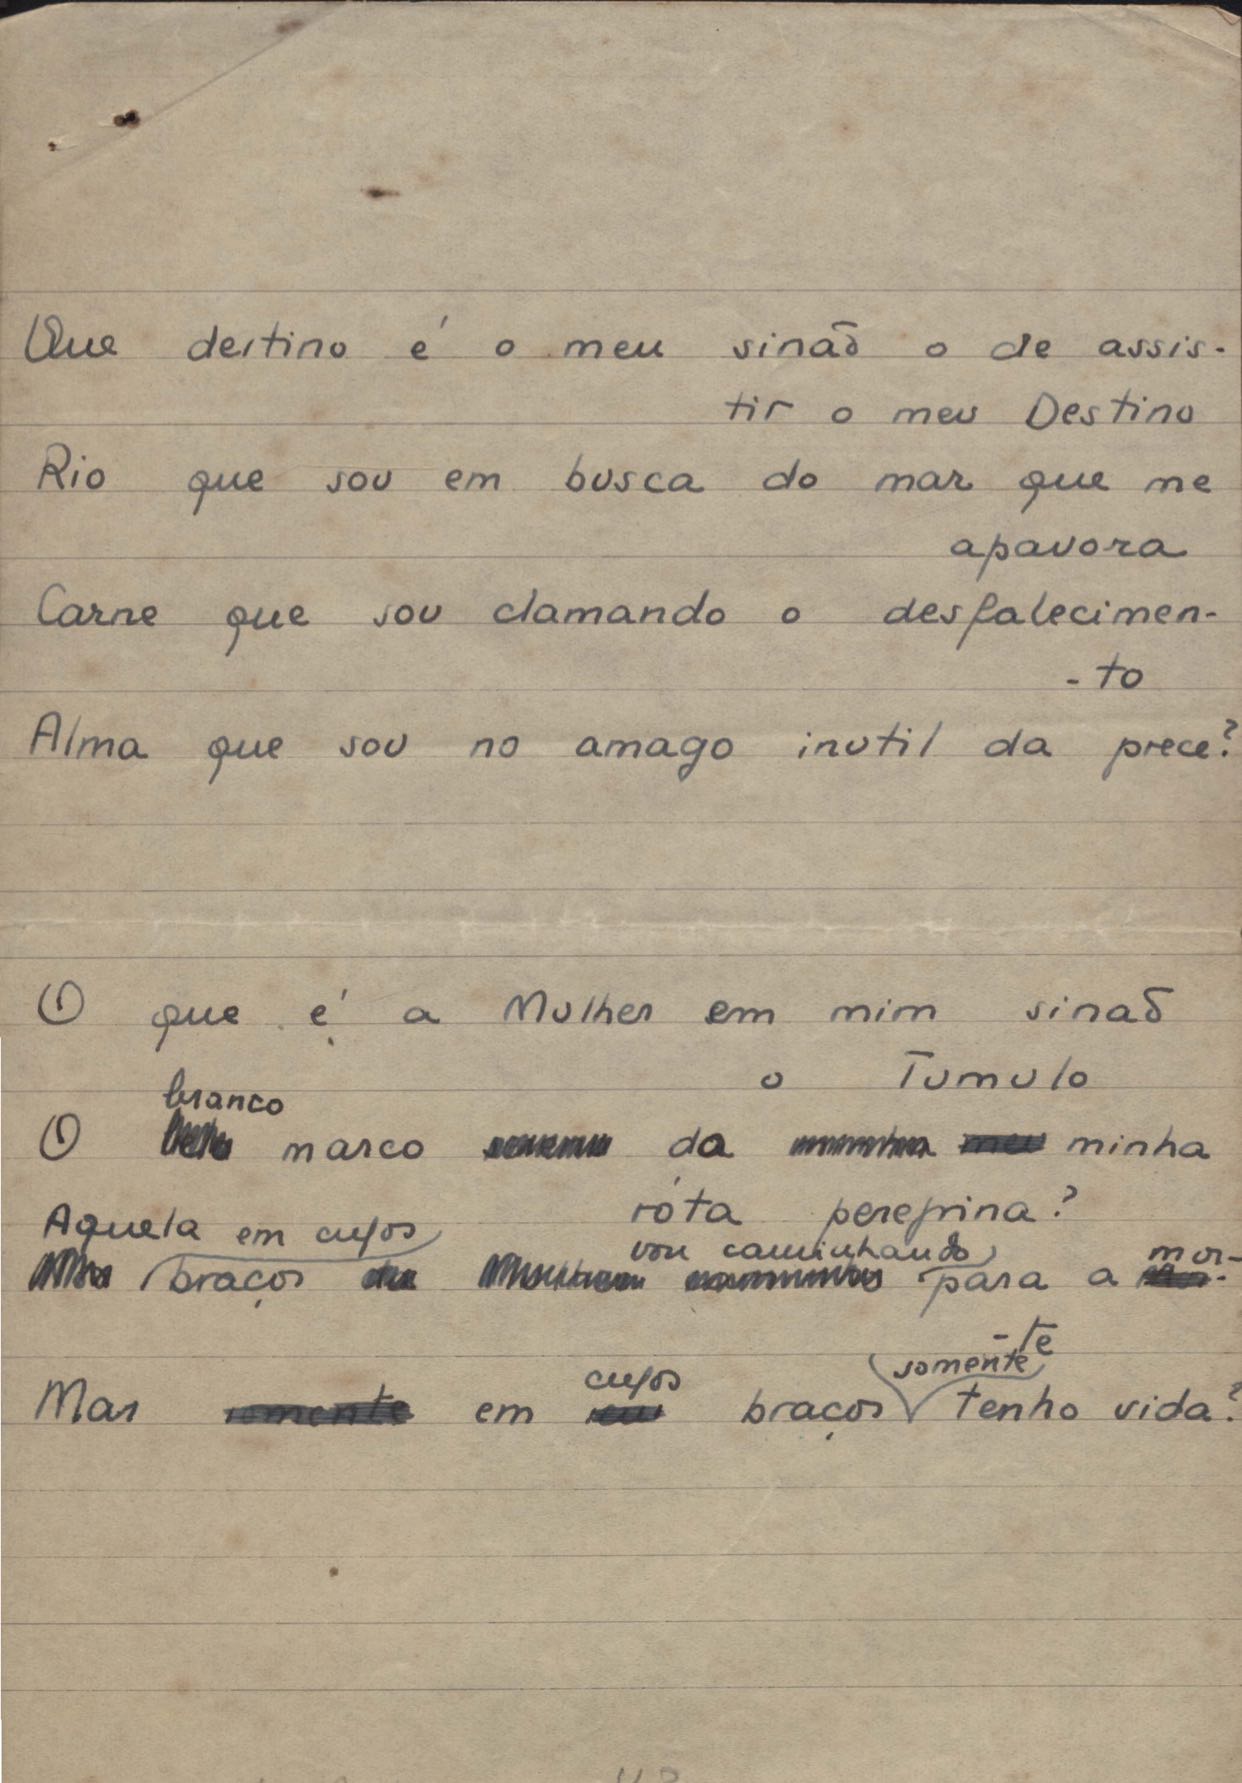 Que destino é o meu sinaõ o de assis-
tir o meu Destino
Rio que sou em busca do mar que me
apavora
Carne que sou clamando o desfalecimen-
-to
Alma que sou no amago inutil da prece?
O que é a Mulher em mim sinaõ
o Tumulo
branco
O marco da meu minha
róta peregrina?
Aquela em cujos
vou caminhando
mor-
braços para a
-te
somente
cujos
Mas somente em braços tenho vida?